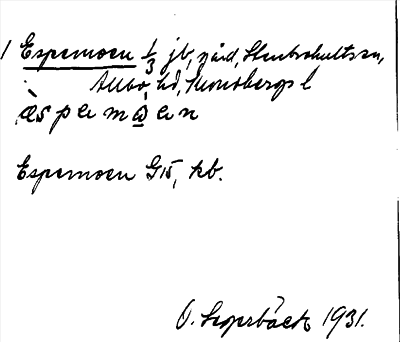 1 Espemoen 1/3 jb, gård, Stenbrohults sn,
Allbo hd, Kronobergs l
àspemωen
Espemoen G15, kb.
O. 1931.